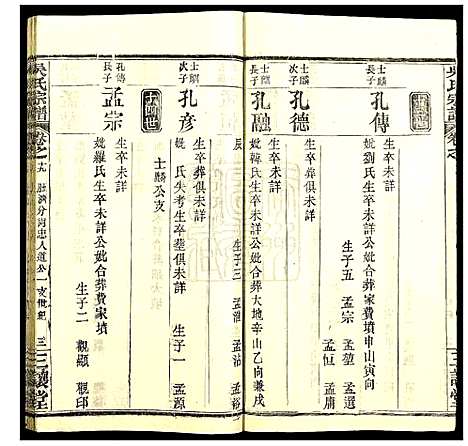 吳氏宗譜
士麟長子
孔傳
生卒未詳
妣劉氏生卒未詳公妣合葬費家墳申山寅向
生子五 孟宗 孟堃 孟庸
孟恒
士麟次子
孔德
生卒葬俱未詳
士騰長子
孔融
生卒未詳
妣韓氏生卒未詳公妣合葬大地辛山乙向兼戌
辰
生子三 孟淮 孟沾
士騰次子
孔彥
生卒葬俱未詳
妣 氏失考生卒塟俱未詳
生子一 孟源
士麟公支
孔傳長子
孟宗
生卒未詳
妣羅氏生卒未詳公妣合葬費家墳
生子二 觀顯 觀印
吳氏宗譜
卷之十九
分河忠人道公一支世紀
三
三讓堂